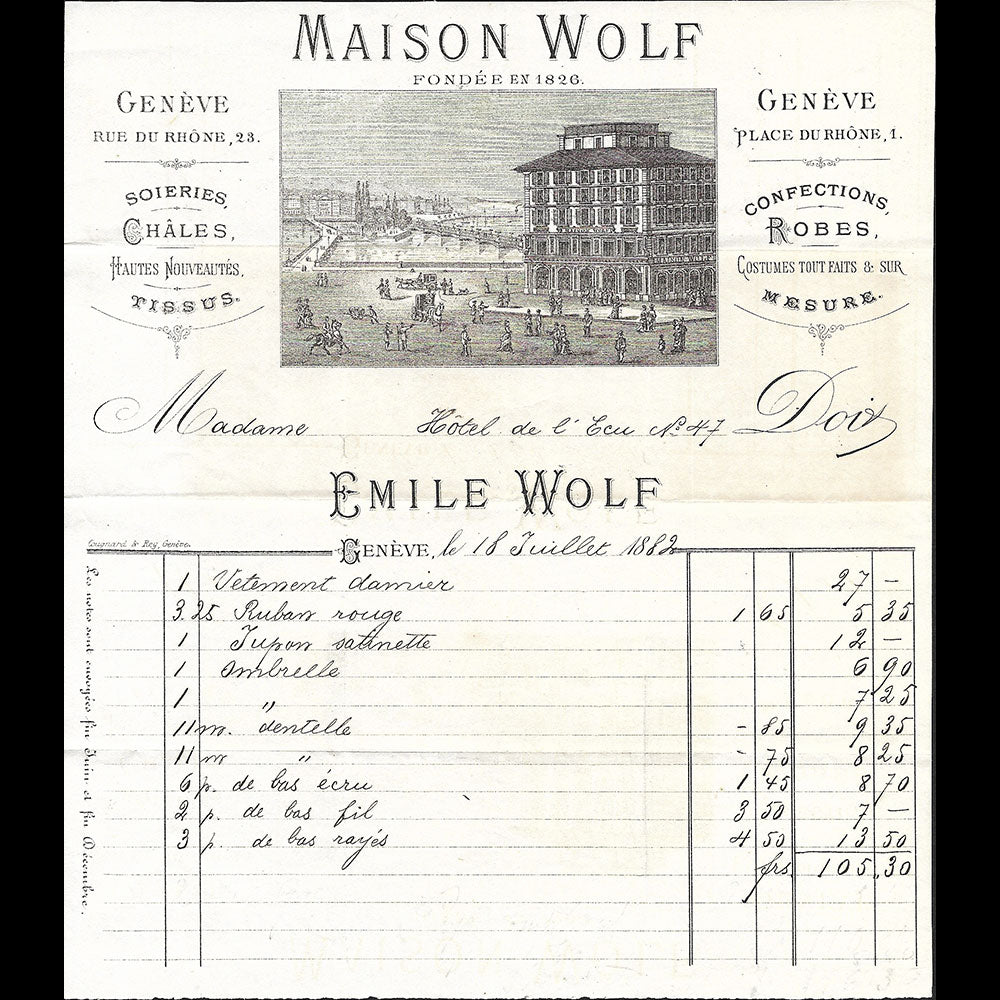 MAISON WOLF
FONDÉE EN 1826.
GENÈVE
RUE DU RHÔNE, 23.
SOIERIES,
CHÂLES,
HAUTES NOUVEAUTÉS,
TISSUS.
GENÈVE
PLACE DU RHÔNE, 1.
CONFECTIONS,
ROBES,
COSTUMES TOUT FAITS & SUR
MESURE.
Madame Hôtel de l'Ecu No 47 Doit
EMILE WOLF
Cougnard & Rey, Genève.
GENÈVE, le 18 Juillet 1882
Les notes sont envoyées fin Juin et fin Décembre.
1 Vetement damier 27 —
3.25 Ruban rouge 1 65 5 35
1 Jupon satinette 12 —
1 Ombrelle 6 90
1 " 7 25
11 m. dentelle - 85 9 35
11 m " - 75 8 25
6 p. de bas écru 1 45 8 70
2 p. de bas fil 3 50 7 —
3 p. de bas rayés 4 50 13 50
frs 105,30